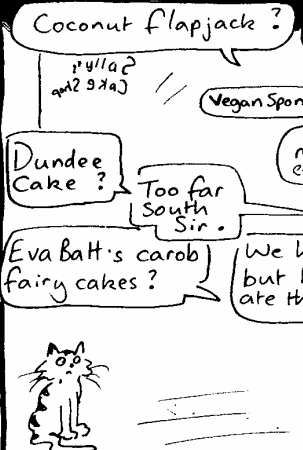 Coconut flapjack ?
Sally's
Cake Shop
Vegan Spon
Dundee
Cake ?
Too far
South
Sir.
Eva Batt's carob
fairy cakes ?
We
but
ate th